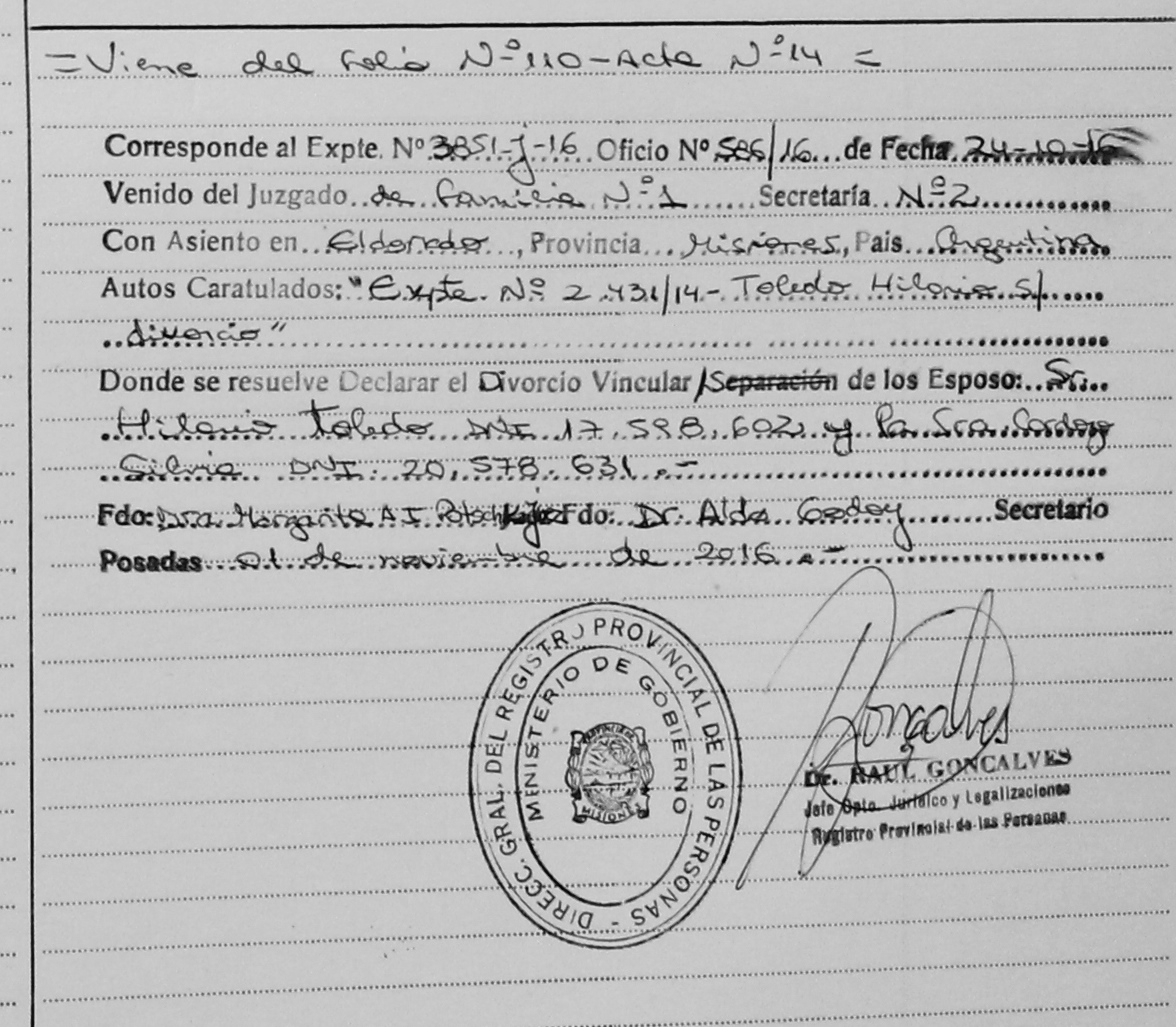 =Viene del folio Nº110-Acta Nº14 =
Corresponde al Expte. Nº 3851-J-16 Oficio Nº 586/16 de Fecha 24-10-16
Venido del Juzgado de Familia Nº1 Secretaría Nº2
Con Asiento en Eldorado, Provincia Misiones, Pais Argentina
Autos Caratulados: "Expte. Nº 2.431/14- Toledo Hilario S/
divorcio"
Donde se resuelve Declarar el Divorcio Vincular/Separación de los Esposo: Sr.
Hilario Toledo DNI 17.598.602 y la Sra. Godoy
Silvia DNI. 20.578.631.-
Fdo: Dra. Margarita A I Fdo: Dr. Aldo Godoy Secretario
Posadas 01 de noviembre de 2016.-
DIRECC. GRAL. DEL REGISTRO PROVINCIAL DE LAS PERSONAS -
MINISTERIO DE GOBIERNO
PROVINCIA DE
MISIONES
Goncalves
Dr. RAUL GONCALVES
Jefe Dpto. Jurídico y Legalizaciones
Registro Provincial de las Personas